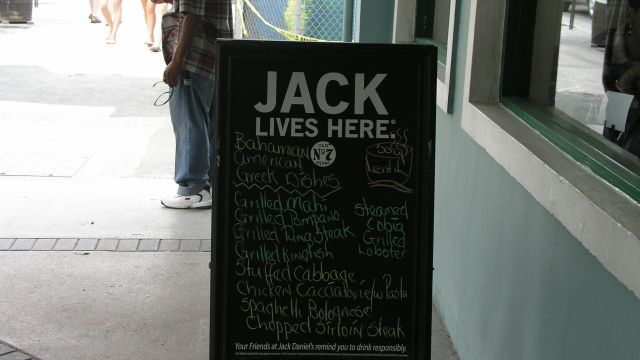 JACK
LIVES HERE.
OLD
No 7
BRAND
Bahamian
American
Greek Dishes
Soup
Lentil
Grilled Mahi
Grilled Pompano
Grilled Tuna Steak
Grilled Kingfish
Steamed
Cobia
Grilled
Lobster
Stuffed Cabbage
Chicken Cacciatore/w Pasta
Spaghetti Bolognese
Chopped Sirloin Steak
Your Friends at Jack Daniel's remind you to drink responsibly.